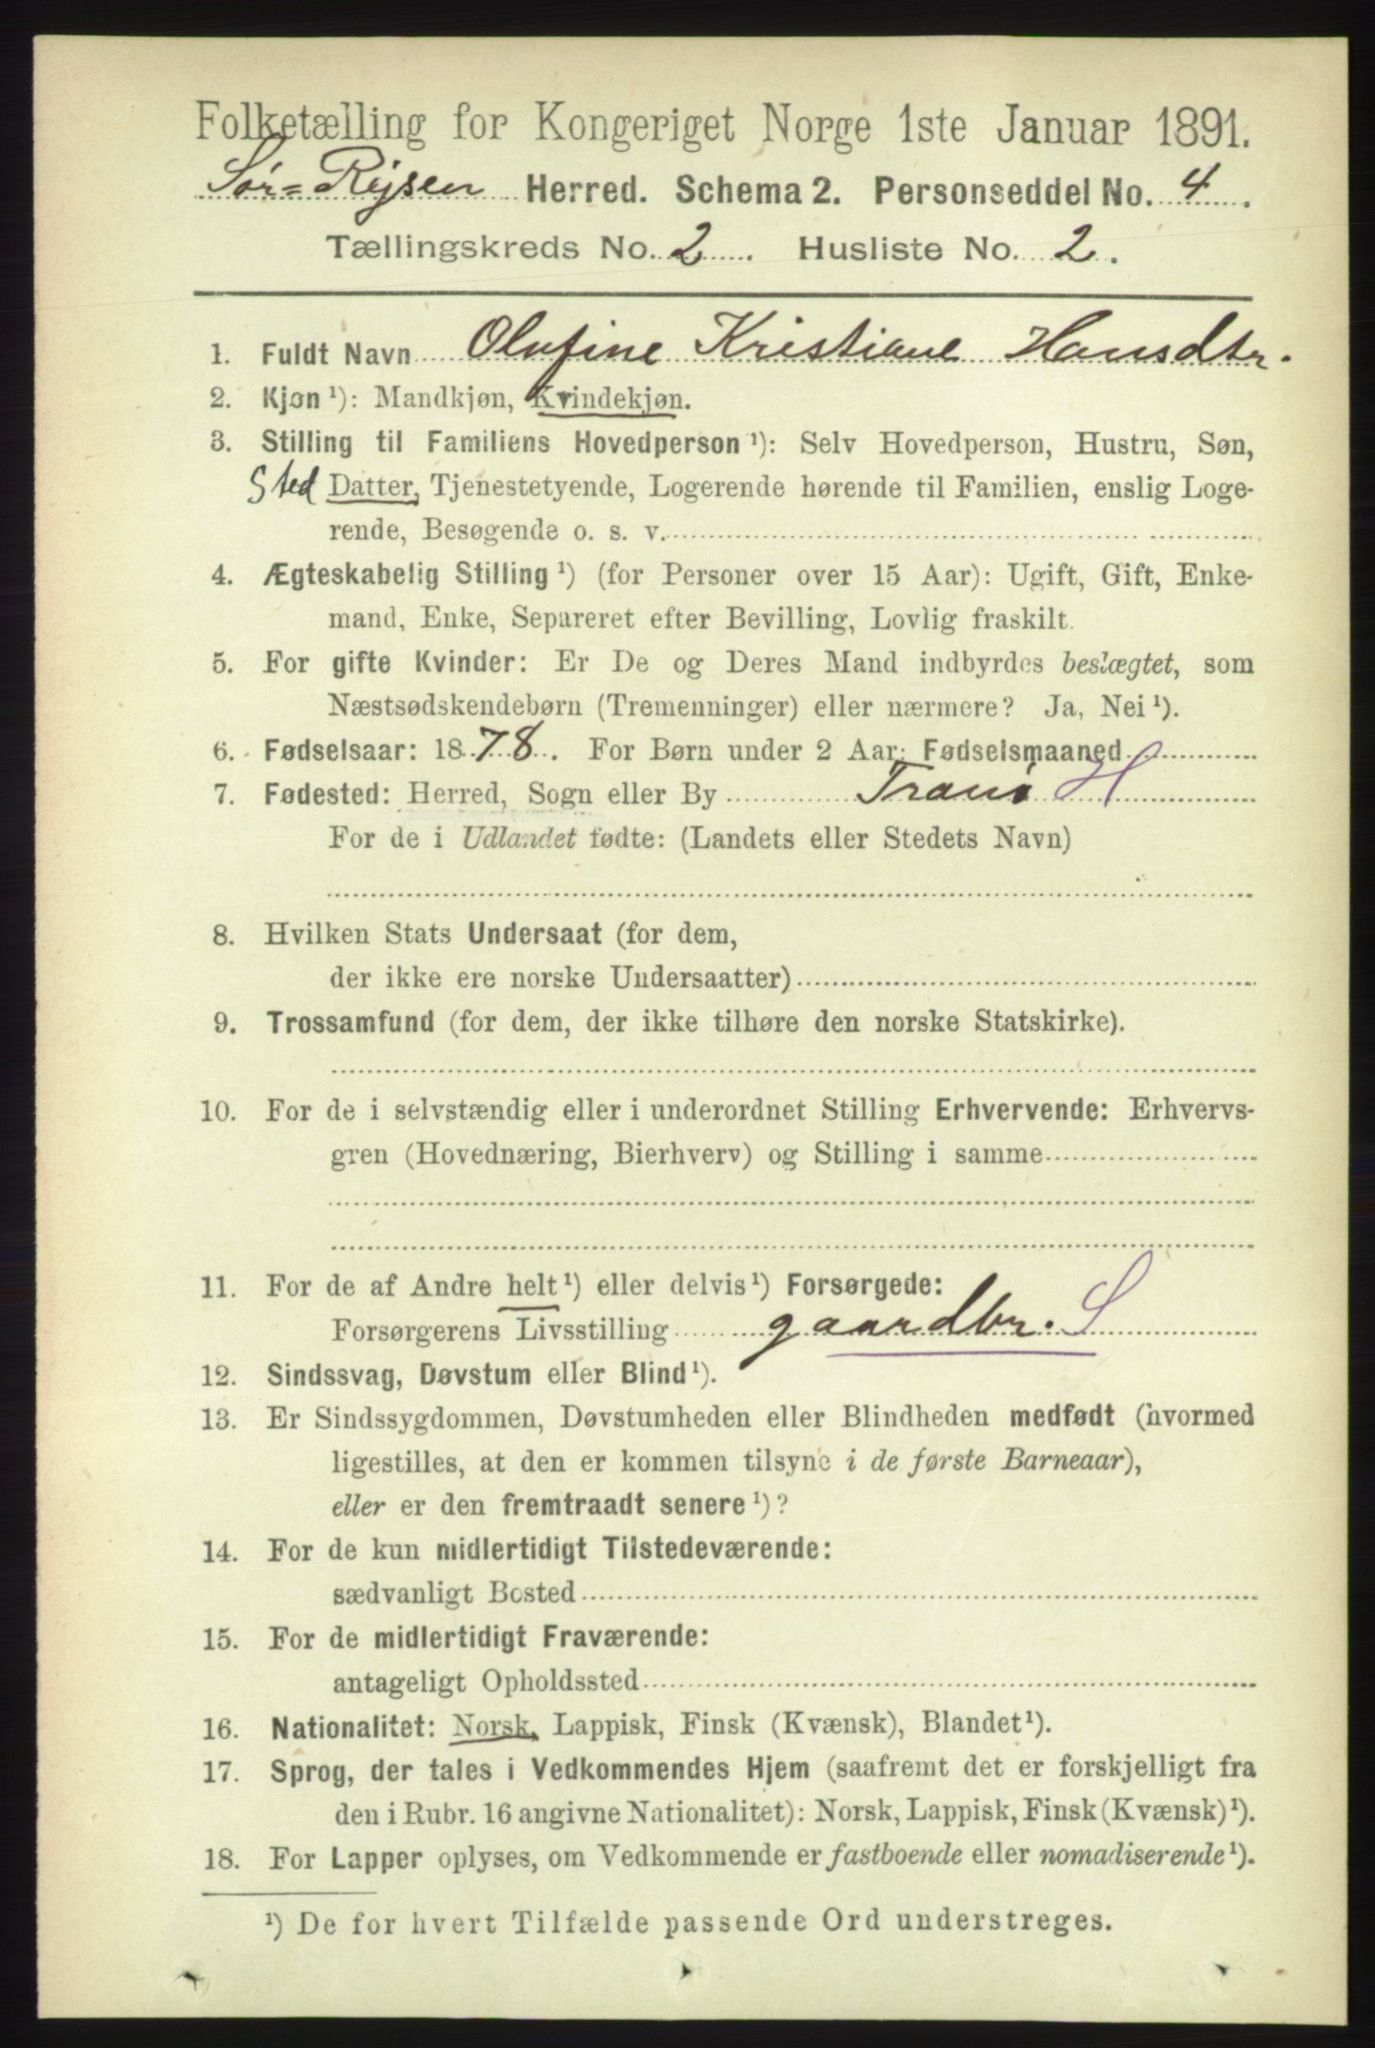 Folketælling for Kongeriget Norge 1ste Januar 1891.
Sør=Rejsen Herred. Schema 2. Personseddel No. 4.
Tællingskreds No. 2. Husliste No. 2.
1. Fuldt Navn Olufine Kristiane Hansdtr.
2. Kjøn ¹): Mandkjøn, Kvindekjøn.
3. Stilling til Familiens Hovedperson ¹): Selv Hovedperson, Hustru, Søn,
Sted Datter, Tjenestetyende, Logerende hørende til Familien, enslig Loge-
rende, Besøgende o. s. v.
4. Ægteskabelig Stilling ¹) (for Personer over 15 Aar): Ugift, Gift, Enke-
mand, Enke, Separeret efter Bevilling, Lovlig fraskilt.
5. For gifte Kvinder: Er De og Deres Mand indbyrdes beslægtet, som
Næstsødskendebørn (Tremenninger) eller nærmere? Ja, Nei ¹).
6. Fødselsaar: 1878. For Børn under 2 Aar: Fødselsmaaned
7. Fødested: Herred, Sogn eller By Tranø H
For de i Udlandet fødte: (Landets eller Stedets Navn)
8. Hvilken Stats Undersaat (for dem,
der ikke ere norske Undersaatter)
9. Trossamfund (for dem, der ikke tilhøre den norske Statskirke).
10. For de i selvstændig eller i underordnet Stilling Erhvervende: Erhvervs-
gren (Hovednæring, Bierhverv) og Stilling i samme
11. For de af Andre helt ¹) eller delvis ¹) Forsørgede:
Forsørgerens Livsstilling gaardbr. S
12. Sindssvag, Døvstum eller Blind ¹).
13. Er Sindssygdommen, Døvstumheden eller Blindheden medfødt (hvormed
ligestilles, at den er kommen tilsyne i de første Barneaar),
eller er den fremtraadt senere ¹)?
14. For de kun midlertidigt Tilstedeværende:
sædvanligt Bosted
15. For de midlertidigt Fraværende:
antageligt Opholdssted
16. Nationalitet: Norsk, Lappisk, Finsk (Kvænsk), Blandet ¹).
17. Sprog, der tales i Vedkommendes Hjem (saafremt det er forskjelligt fra
den i Rubr. 16 angivne Nationalitet): Norsk, Lappisk, Finsk (Kvænsk) ¹).
18. For Lapper oplyses, om Vedkommende er fastboende eller nomadiserende ¹).
¹) De for hvert Tilfælde passende Ord understreges.